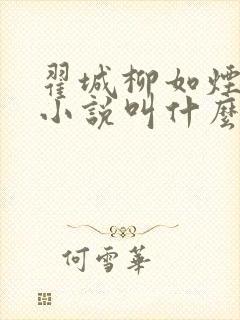 翟城柳如煙
小說叫什麼
何雪華